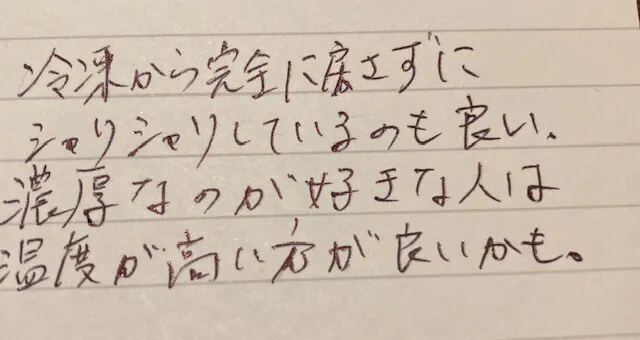 冷凍から完全に戻さずに
シャリシャリしているのも良い、
濃厚なのが好きな人は
温度が高い方が良いかも。